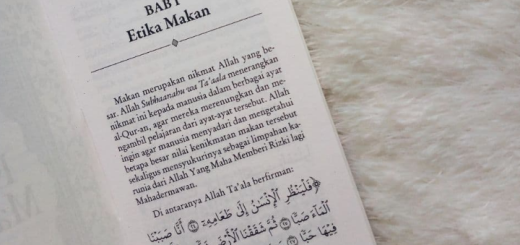 BAB I
Etika Makan
Makan merupakan nikmat Allah yang be-
sar. Allah Subhaanahu wa Ta'aala menerangkan
nikmat ini kepada manusia dalam berbagai ayat
al-Qur-an, agar mereka merenungkan dan me-
ngambil pelajaran dari ayat-ayat tersebut. Allah
ingin agar manusia menyadari dan mengetahui
betapa besar nilai kenikmatan makan tersebut
sekaligus mensyukurinya sebagai limpahan ka-
runia dari Allah Yang Maha Memberi Rizki lagi
Mahadermawan.
Di antaranya Allah Ta'ala berfirman:
﴿ فَلْيَنظُرِ الْإِنسَٰنُ إِلَىٰ طَعَامِهِۦٓ ۝ أَنَّا صَبَبْنَا
الْمَآءَ صَبًّا ۝ ثُمَّ شَقَقْنَا الْأَرْضَ
فِيهَا حَبًّا